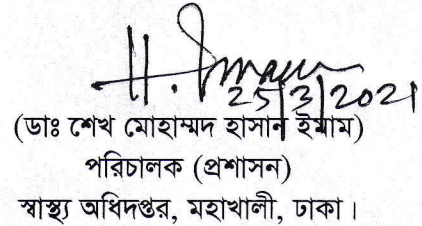 H. Imam
25/3/2021
(ডাঃ শেখ মোহাম্মদ হাসান ইমাম)
পরিচালক (প্রশাসন)
স্বাস্থ্য অধিদপ্তর, মহাখালী, ঢাকা।